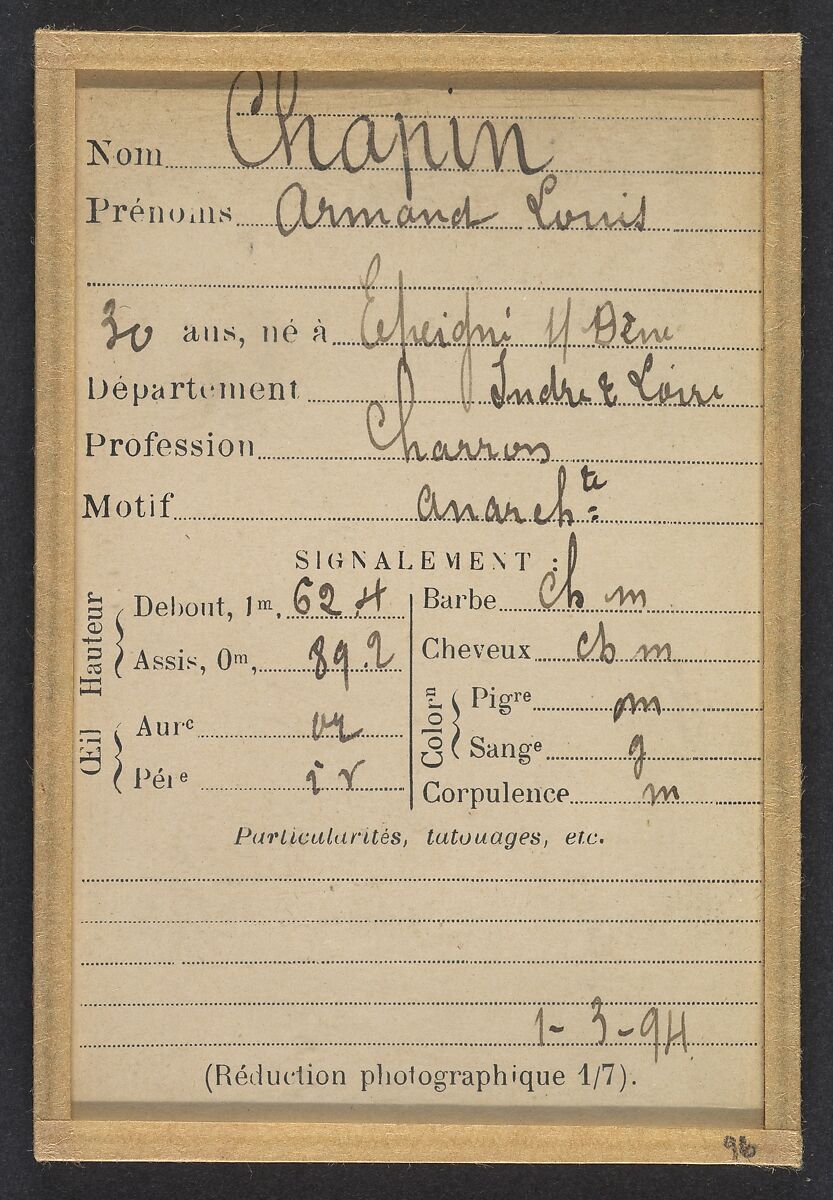 Nom Chapin
Prénoms Armand Louis
30 ans, né à Epeigné s/ Dême
Département Indre & Loire
Profession Charron
Motif anarch te
SIGNALEMENT :
Hauteur
Debout, 1 m, 62,4
Assis, 0 m, 89.2
Œil
Aur e or
Pér e i v
Barbe ch m
Cheveux ch m
Color n
Pig re m
Sang e g
Corpulence m
Particularités, tatouages, etc.
1-3-94
(Réduction photographique 1/7).